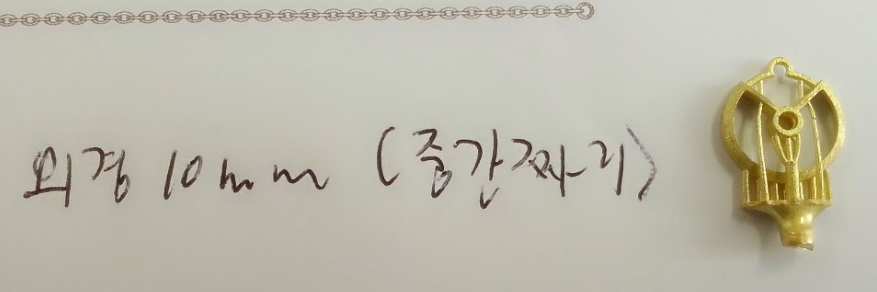 외경 10mm (중간짜리)